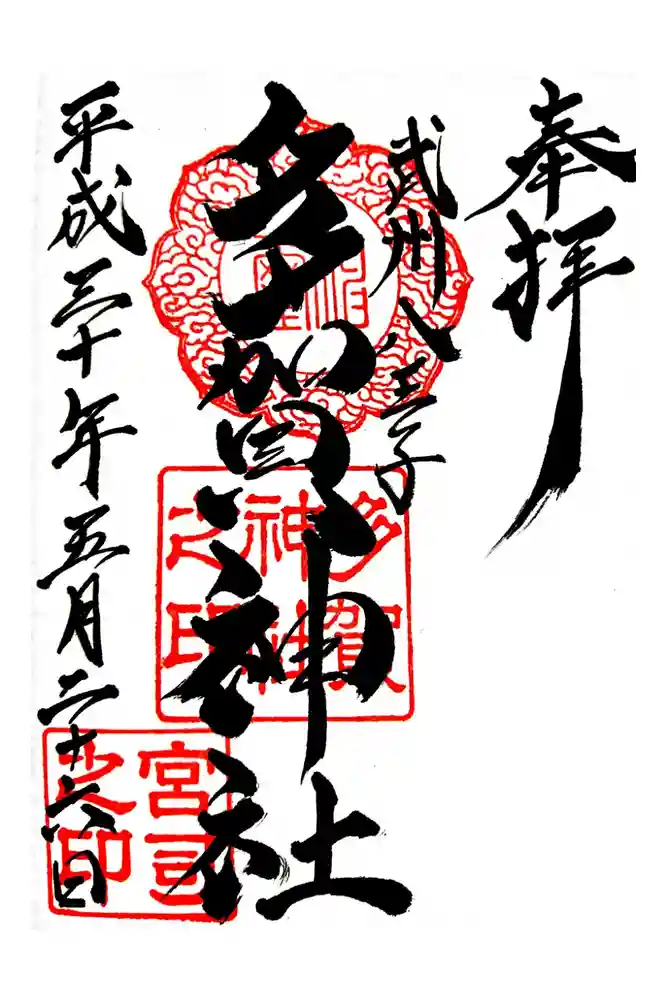 奉拝
武州八王子
多賀神社
平成三十年五月二十六日
多賀
神社
之印
宮司
之印